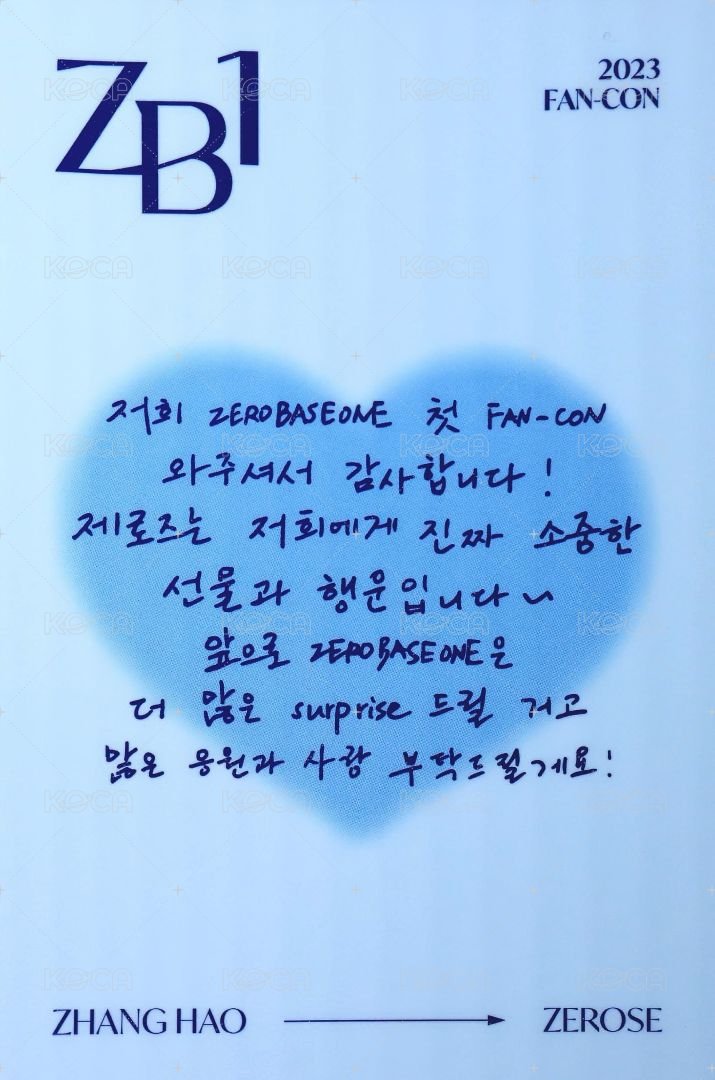 ZB1
2023
FAN-CON
저희 ZEROBASEONE 첫 FAN-CON
와주셔서 감사합니다!
제로즈는 저희에게 진짜 소중한
선물과 행운입니다~
앞으로 ZEROBASEONE은
더 많은 surprise 드릴 거고
많은 응원과 사랑 부탁드릴게요!
ZHANG HAO → ZEROSE
KOCA